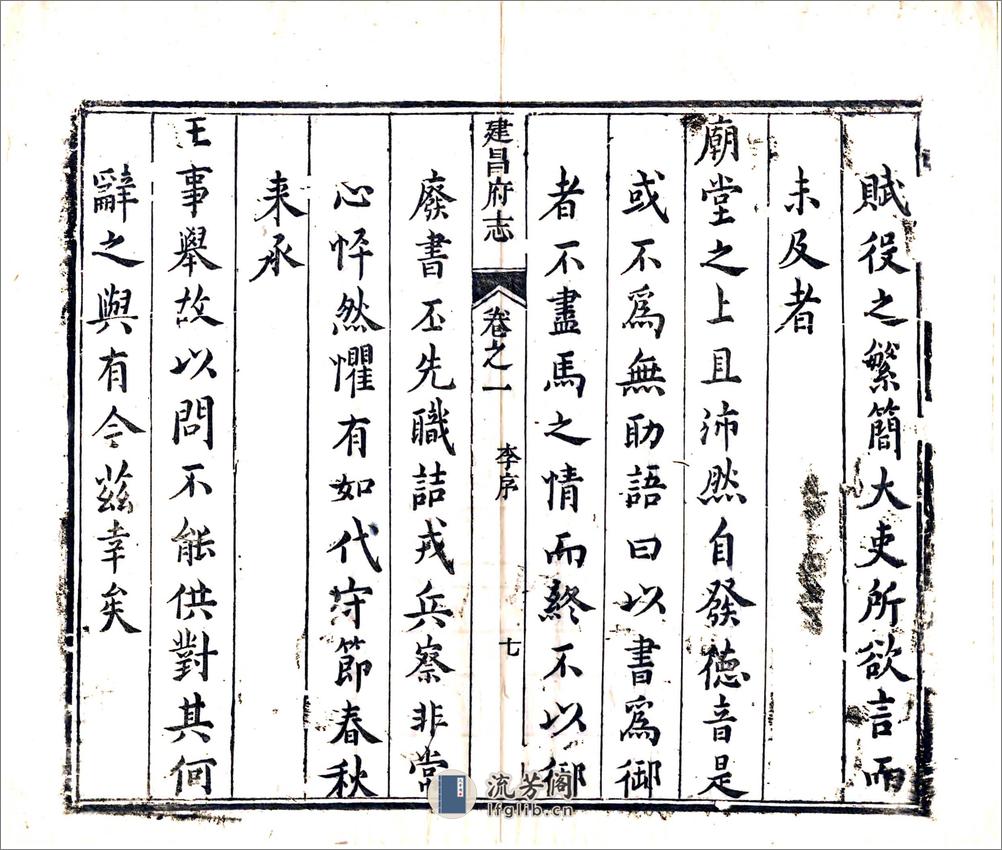 賦役之繁簡大吏所欲言而
未及者
廟堂之上且沛然自發德音是
或不爲無助語曰以書爲御
者不盡馬之情而終不以御
建昌府志 卷之一 李序 七
廢書丕先職詰戎兵察非常
心怦然懼有如代守節春秋
来承
王事舉故以問不能供對其何
辭之與有今茲幸矣
流芳阁
lfglib.cn